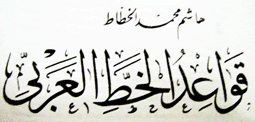 هاشم محمد الخطاط
قواعد الخط العربي